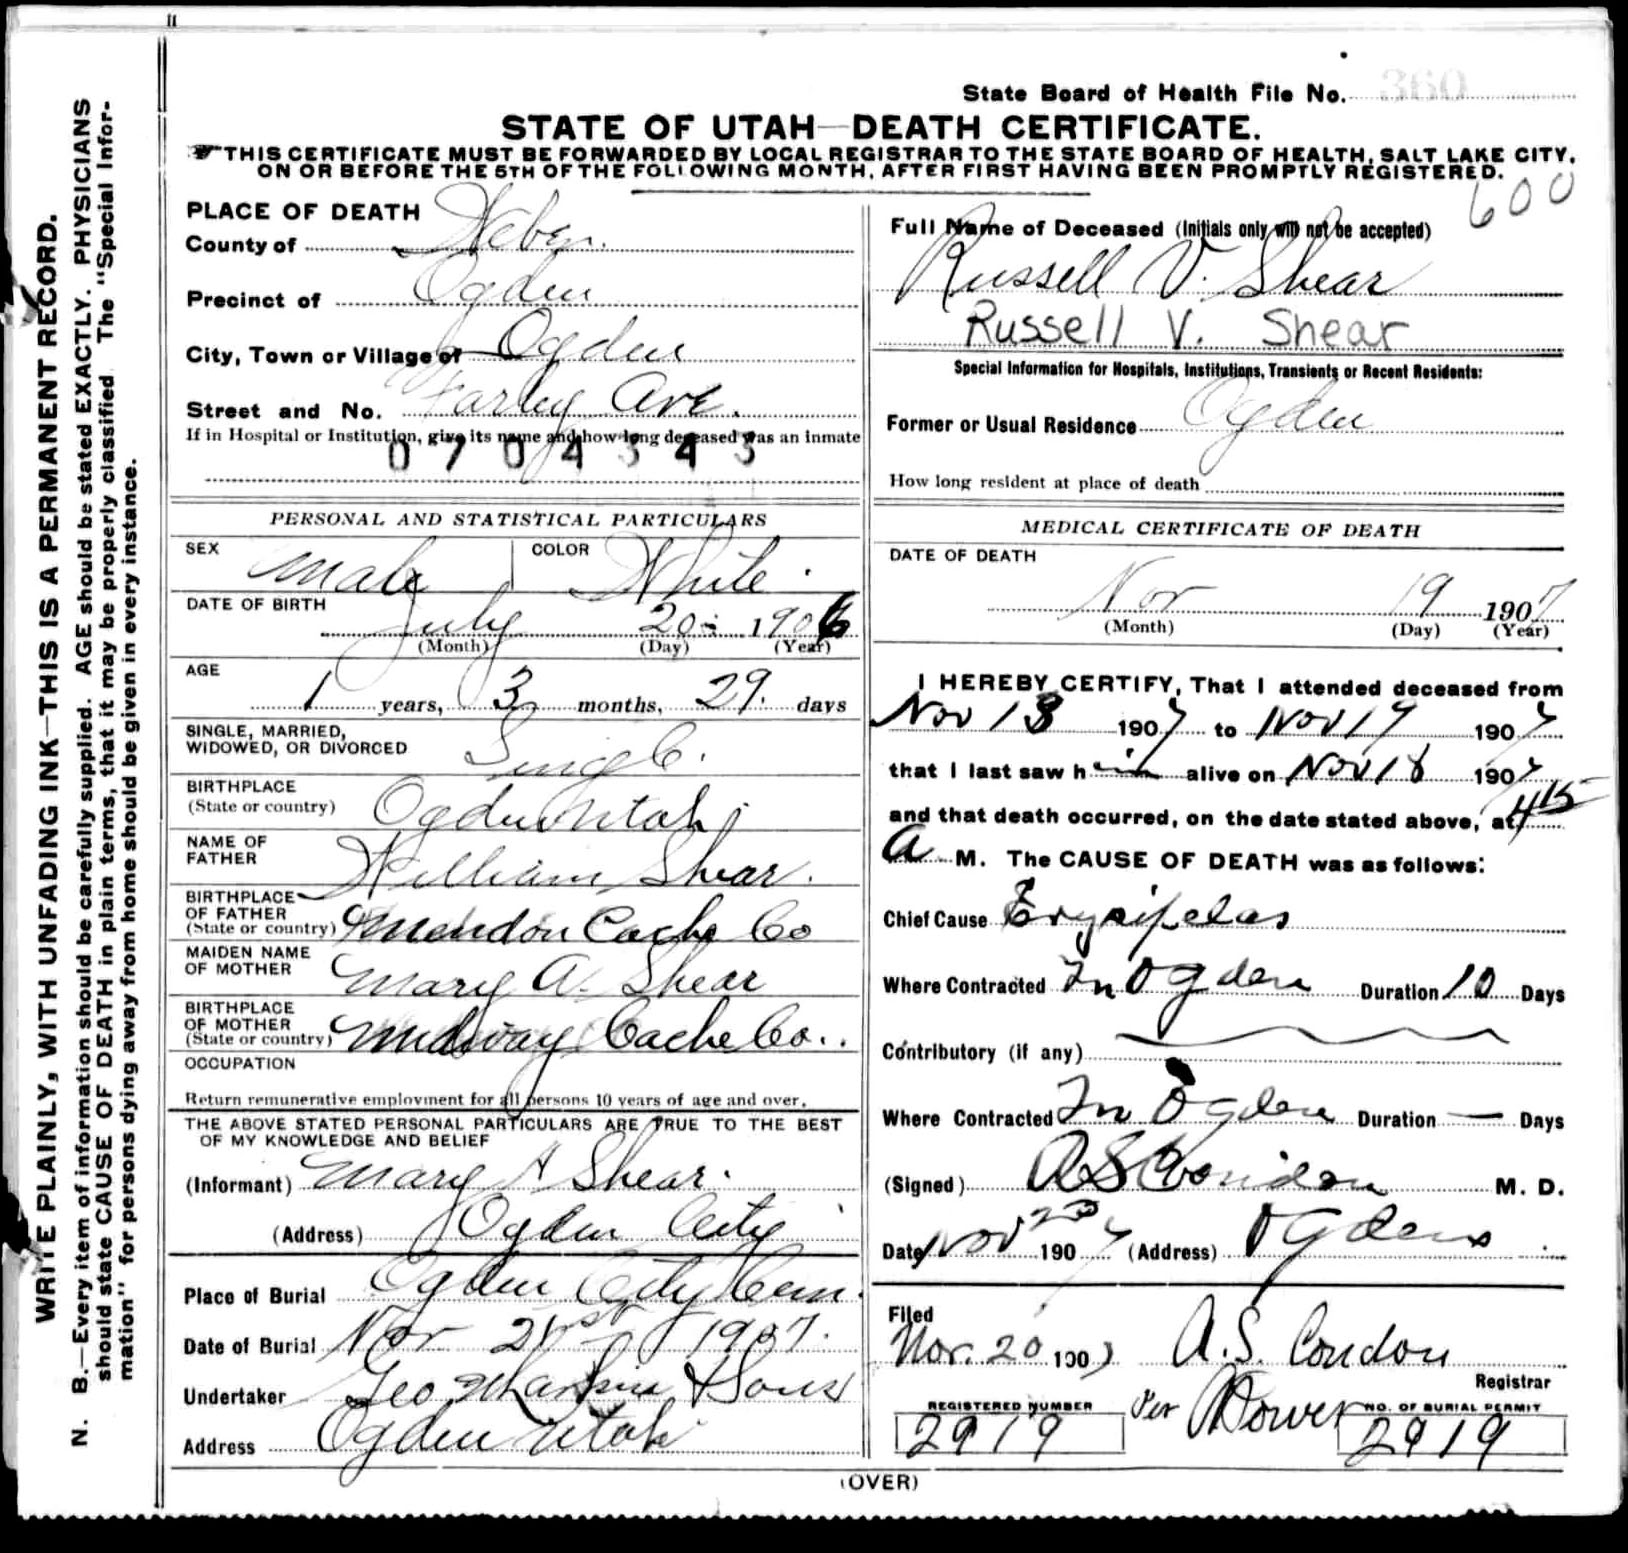 State Board of Health File No. 360
STATE OF UTAH—DEATH CERTIFICATE.
THIS CERTIFICATE MUST BE FORWARDED BY LOCAL REGISTRAR TO THE STATE BOARD OF HEALTH, SALT LAKE CITY,
ON OR BEFORE THE 5TH OF THE FOLLOWING MONTH, AFTER FIRST HAVING BEEN PROMPTLY REGISTERED.
600
WRITE PLAINLY, WITH UNFADING INK—THIS IS A PERMANENT RECORD.
N. B.—Every item of information should be carefully supplied. AGE should be stated EXACTLY. PHYSICIANS
should state CAUSE OF DEATH in plain terms, that it may be properly classified. The "Special Infor-
mation" for persons dying away from home should be given in every instance.
PLACE OF DEATH
County of Weber.
Precinct of Ogden
City, Town or Village of Ogden
Street and No. Farley Ave.
If in Hospital or Institution, give its name and how long deceased was an inmate
0704343
PERSONAL AND STATISTICAL PARTICULARS
SEX Male COLOR White.
DATE OF BIRTH
July 20 1906
(Month) (Day) (Year)
AGE
1 years, 3 months, 29. days
SINGLE, MARRIED,
WIDOWED, OR DIVORCED Single.
BIRTHPLACE
(State or country) Ogden Utah
NAME OF
FATHER William Shear.
BIRTHPLACE
OF FATHER
(State or country) Mendon Cache Co
MAIDEN NAME
OF MOTHER Mary A. Shear
BIRTHPLACE
OF MOTHER
(State or country) Midway Cache Co..
OCCUPATION
Return remunerative employment for all persons 10 years of age and over.
THE ABOVE STATED PERSONAL PARTICULARS ARE TRUE TO THE BEST
OF MY KNOWLEDGE AND BELIEF
(Informant) Mary A Shear.
(Address) Ogden City
Place of Burial Ogden City Cem.
Date of Burial Nov 21st 1907.
Undertaker Geo & Sons
Address Ogden Utah
Full Name of Deceased (Initials only will not be accepted)
Russell V. Shear
Russell V. Shear
Special Information for Hospitals, Institutions, Transients or Recent Residents:
Former or Usual Residence Ogden
How long resident at place of death
MEDICAL CERTIFICATE OF DEATH
DATE OF DEATH
Nov 19 1907
(Month) (Day) (Year)
I HEREBY CERTIFY, That I attended deceased from
Nov 13 1907 to Nov 19 1907
that I last saw him alive on Nov 18 1907
and that death occurred, on the date stated above, at 4 15
A M. The CAUSE OF DEATH was as follows:
Chief Cause Erysipelas
Where Contracted In Ogden Duration 10 Days
Contributory (if any)
Where Contracted In Ogden Duration — Days
(Signed) A S Condon M. D.
Date Nov 20 1907 (Address) Ogden
Filed
Nov. 20 1907 A. S. Condon
Registrar
Per
REGISTERED NUMBER
2919
NO. OF BURIAL PERMIT
2919
(OVER)